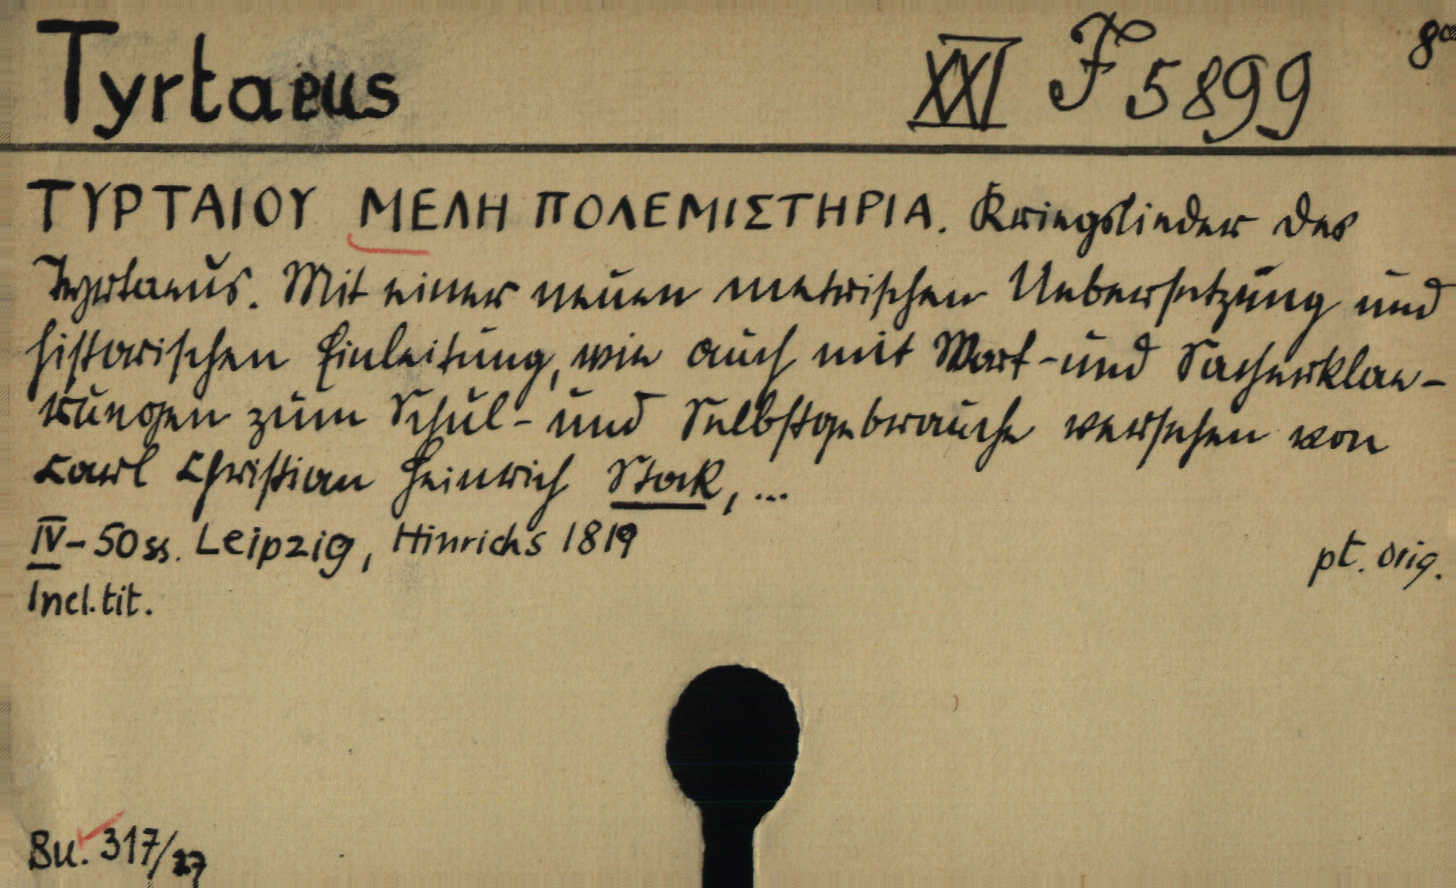 Tyrtaeus XXI F 5899 8°
ΤΥΡΤΑΙΟΥ ΜΕΛΗ ΠΟΛΕΜΙΣΤΗΡΙΑ. Kriegslieder des
Tyrtaeus. Mit einer neuen metrischen Uebersetzung und
historischen Einleitung, wie auch mit Wort- und Sacherklae-
rungen zum Schul- und Selbstgebrauche versehen von
Carl Christian Heinrich Stock, ...
IV-50 ss. Leipzig, Hinrichs 1819 pt. orig.
Incl. tit.
Bu. 317/27